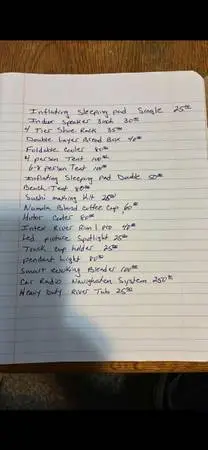 Inflating Sleeping pad Single 25⁰⁰
Indoor Speaker 30⁰⁰
4 Tier Shoe Rack 35⁰⁰
Double Layer Bread Box 40⁰⁰
Foldable Cooler 80⁰⁰
4 person Tent 100⁰⁰
6-8 person Tent
Inflating Sleeping Pad Double 50⁰⁰
Beach Tent 80⁰⁰
Sushi making Kit 25⁰⁰
Blend Coffee Cup, 60⁰⁰
Cooler 80⁰⁰
Intex River Run 1 40⁰⁰
Led picture Spotlight 25⁰⁰
Truck cup holder 25⁰⁰
pendant Light 80⁰⁰
Smart Blender 100⁰⁰
Car Radio Navigation System 250⁰⁰
Heavy Duty River Tube 25⁰⁰